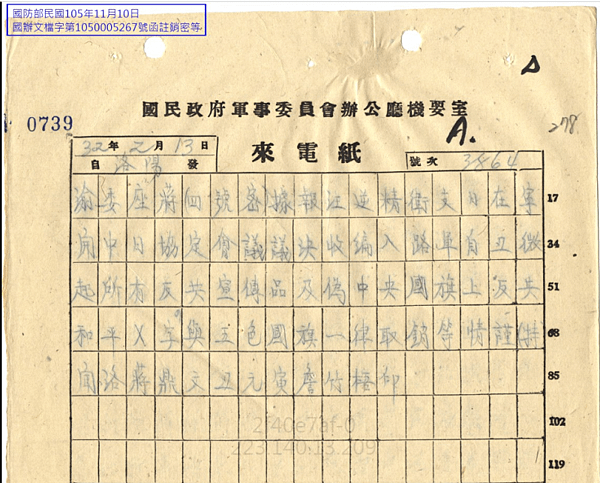 國防部民國105年11月10日
國辦文檔字第1050005267號函註銷密等
0739
國民政府軍事委員會辦公廳機要室
A.
278
32年2月13日
自洛陽發
來電紙
號次 3864
渝委座蔣 號密據報汪逆精衛支日在寧 17
開中日協定會議議決收編入路軍自 34
起所有反共宣傳品及偽中央國旗上反共 51
和平X字與五色國旗一律取銷等情謹(特 68
聞洛蔣鼎文丑元寅詹竹梧印 85
102
2f40e7af-0
223.140.13.209
119